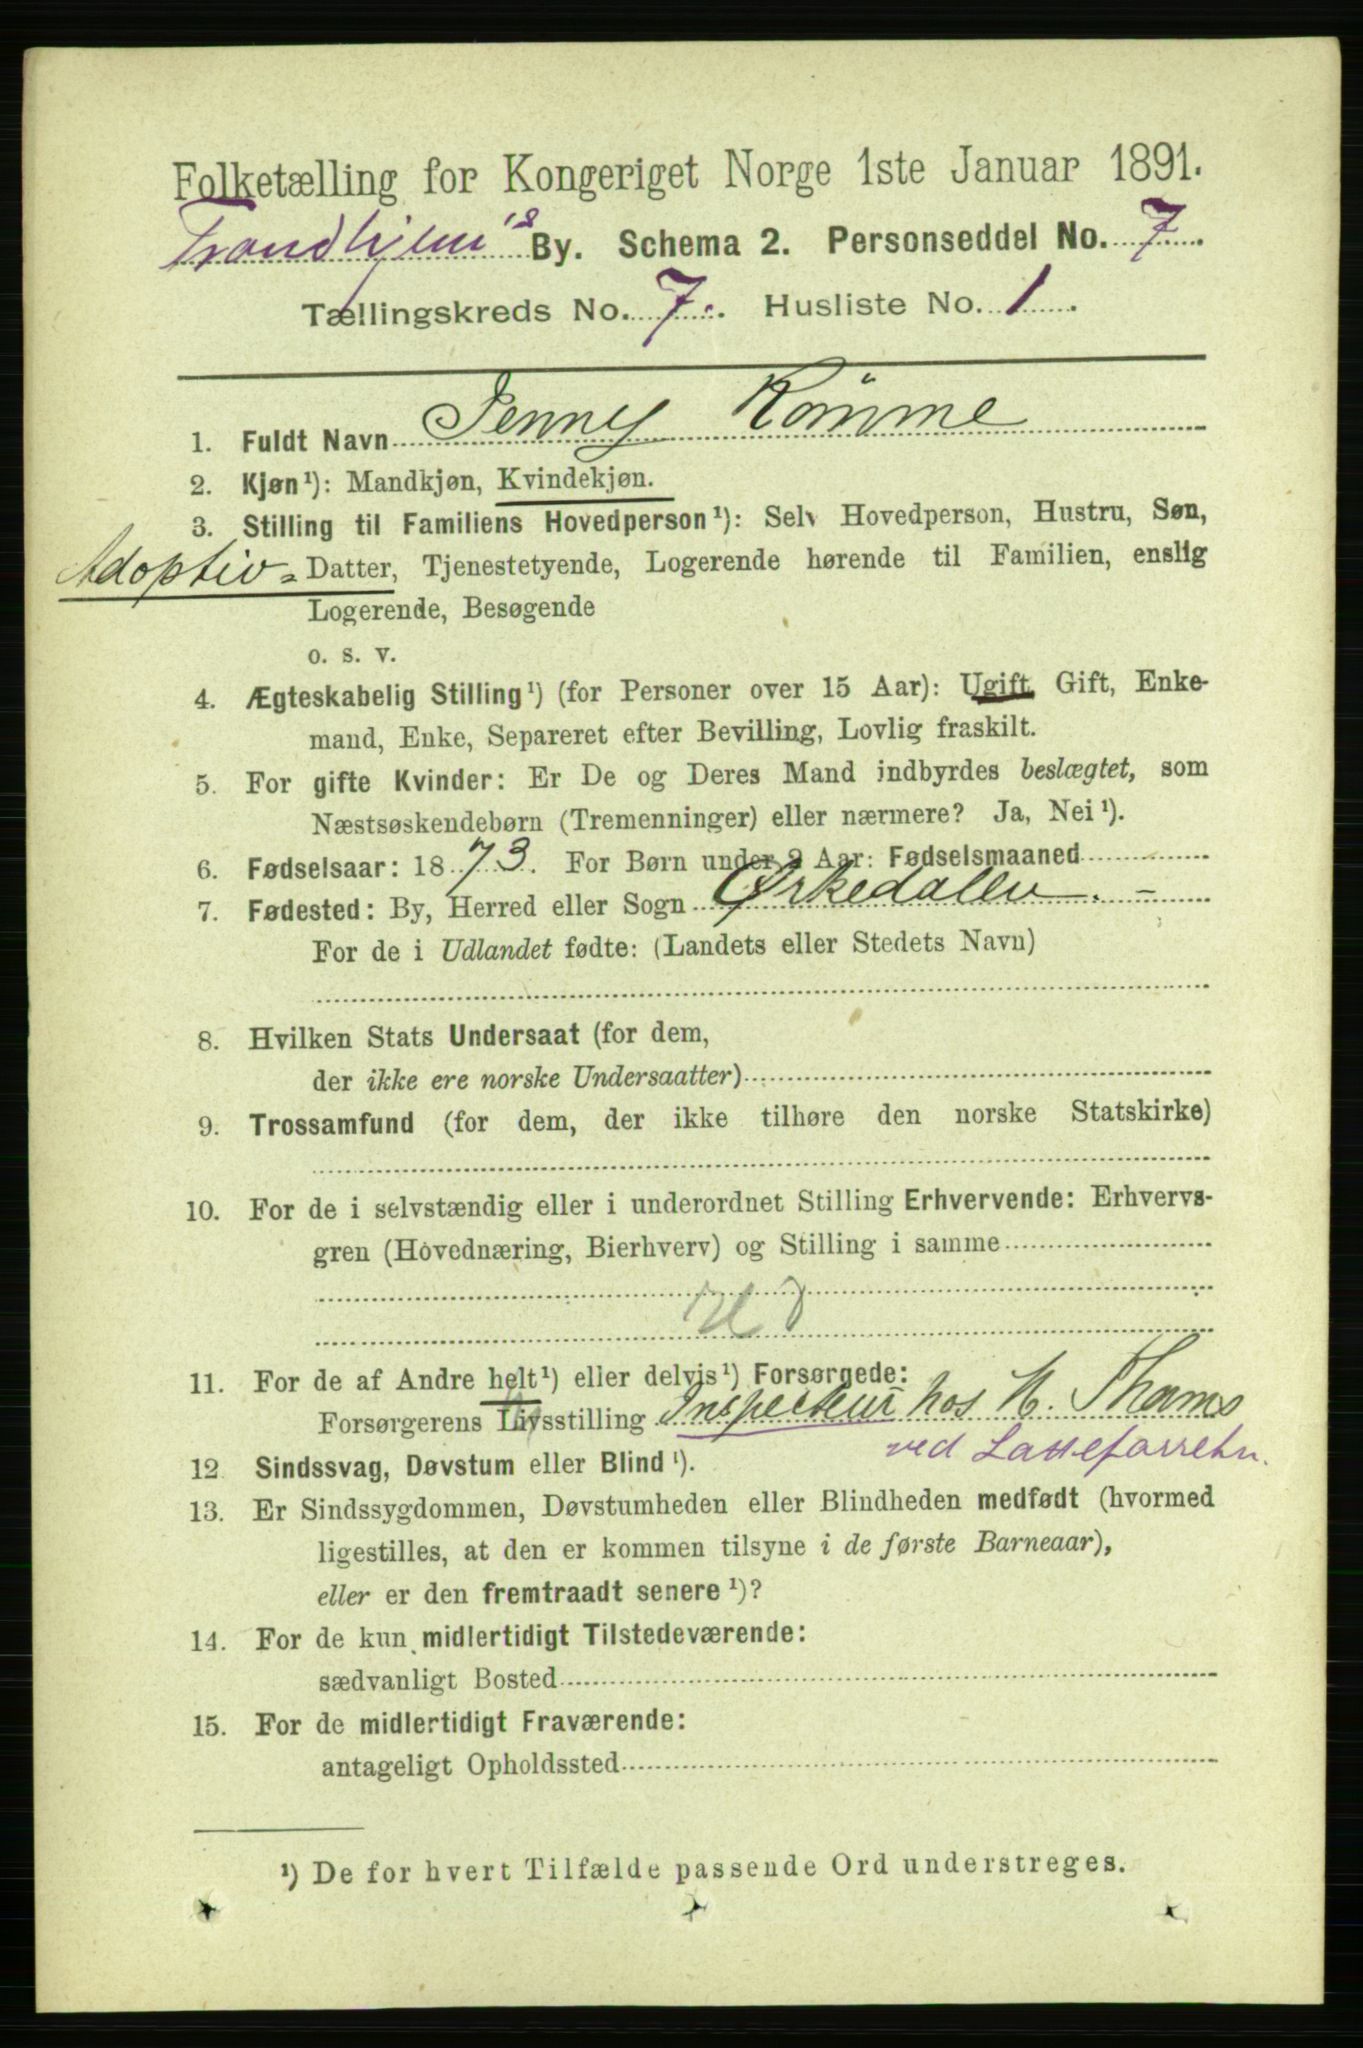 Folketælling for Kongeriget Norge 1ste Januar 1891.
Trondhjem's By. Schema 2. Personseddel No. 7.
Tællingskreds No. 7. Husliste No. 1.
1. Fuldt Navn Jenny Römme
2. Kjøn¹): Mandkjøn, Kvindekjøn.
3. Stilling til Familiens Hovedperson¹): Selv Hovedperson, Hustru, Søn,
Adoptiv- Datter, Tjenestetyende, Logerende hørende til Familien, enslig
Logerende, Besøgende
o. s. v.
4. Ægteskabelig Stilling¹) (for Personer over 15 Aar): Ugift, Gift, Enke-
mand, Enke, Separeret efter Bevilling, Lovlig fraskilt.
5. For gifte Kvinder: Er De og Deres Mand indbyrdes beslægtet, som
Næstsøskendebørn (Tremenninger) eller nærmere? Ja, Nei¹).
6. Fødselsaar: 1873. For Børn under 2 Aar: Fødselsmaaned
7. Fødested: By, Herred eller Sogn Ørkedalen. -
For de i Udlandet fødte: (Landets eller Stedets Navn)
8. Hvilken Stats Undersaat (for dem,
der ikke ere norske Undersaatter)
9. Trossamfund (for dem, der ikke tilhøre den norske Statskirke)
10. For de i selvstændig eller i underordnet Stilling Erhvervende: Erhvervs-
gren (Hovednæring, Bierhverv) og Stilling i samme
11. For de af Andre helt¹) eller delvis¹) Forsørgede:
Forsørgerens Livsstilling Inspecteur hos M. Thams
ved
12 Sindssvag, Døvstum eller Blind¹).
13. Er Sindssygdommen, Døvstumheden eller Blindheden medfødt (hvormed
ligestilles, at den er kommen tilsyne i de første Barneaar),
eller er den fremtraadt senere¹)?
14. For de kun midlertidigt Tilstedeværende:
sædvanligt Bosted
15. For de midlertidigt Fraværende:
antageligt Opholdssted
¹) De for hvert Tilfælde passende Ord understreges.